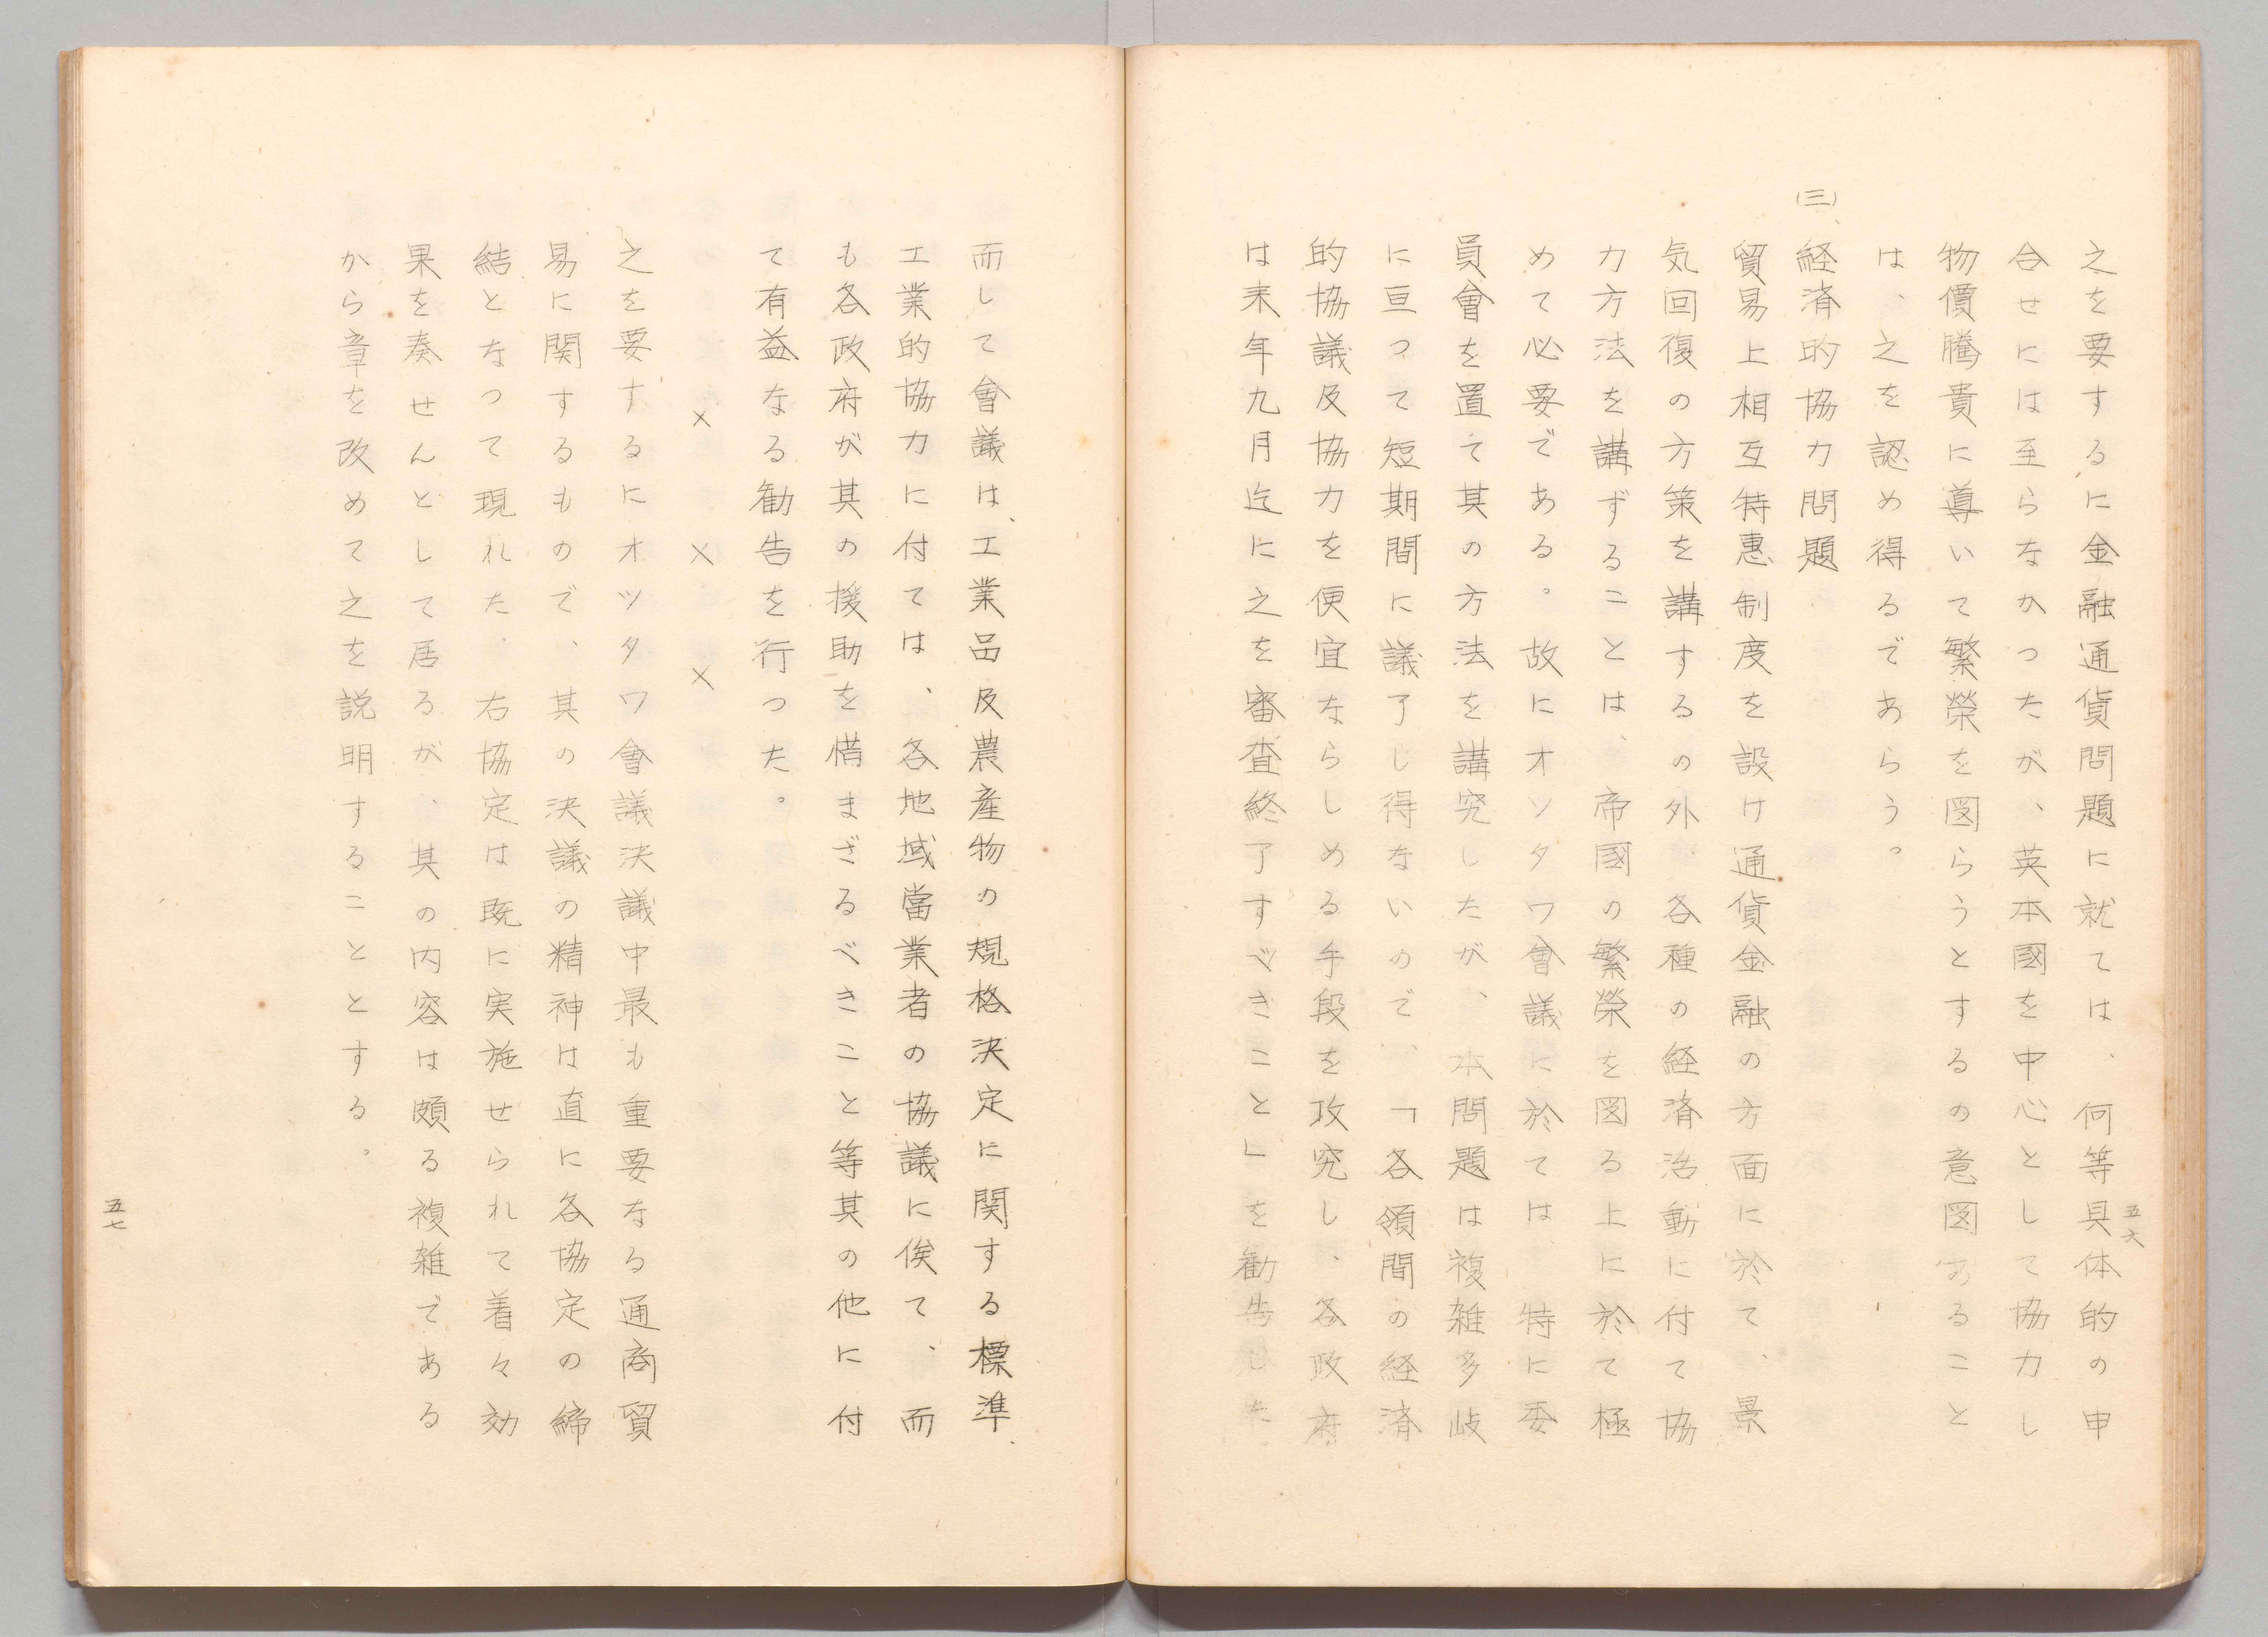 五六
之を要するに金融通貨問題に就ては、何等具体的の申
合せには至らなかつたが、英本國を中心として協力し
物價騰貴に導いて繁榮を図らうとするの意図あること
は、之を認め得るであらう。
(三)、経済的協力問題
貿易上相互特惠制度を設け通貨金融の方面に於て、景
気回復の方策を講するの外、各種の経済活動に付て協
力方法を講ずることは、帝國の繁榮を図る上に於て極
めて必要である。故にオツタワ會議に於ては、特に委
員會を置て其の方法を講究したが、本問題は複雑多岐
に亘つて短期間に議了し得ないので、「各領間の経済
的協議及協力を便宜ならしめる手段を攻究し、各政府
は来年九月迄に之を審査終了すべきこと」を勧告した。
而して會議は、工業品及農産物の規格決定に関する標準、
工業的協力に付ては、各地域當業者の協議に俟て、而
も各政府が其の援助を惜まざるべきこと等其の他に付
て有益なる勧告を行つた。
× × ×
之を要するにオツタワ會議決議中最も重要なる通商貿
易に関するもので、其の決議の精神は直に各協定の締
結となつて現れた。右協定は既に実施せられて着々効
果を奏せんとして居るが、其の内容は頗る複雑である
から章を改めて之を説明することとする。
五七